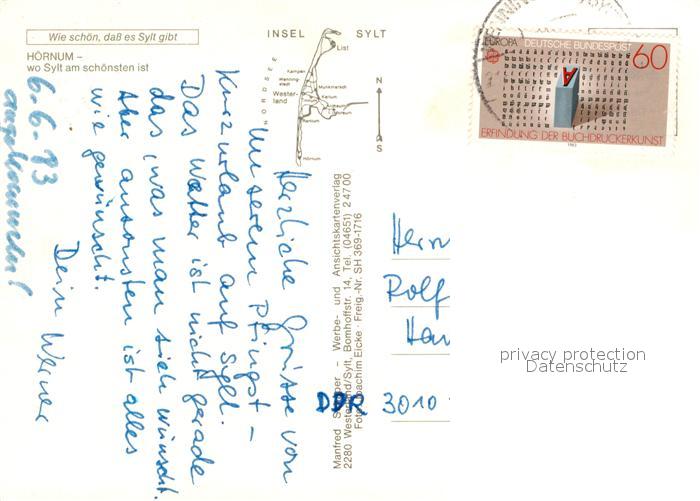 Wie schön, daß es Sylt gibt
HÖRNUM –
wo Sylt am schönsten ist
INSEL SYLT
List
Kampen
Wester-
land
Hörnum
NORDSEE
N
S
EUROPA DEUTSCHE BUNDESPOST 60
ERFINDUNG DER BUCHDRUCKERKUNST
1983
Herzliche Grüsse von
unserem Pfingst –
Kurzurlaub auf Sylt.
Das Wetter ist nicht gerade
das, was man sich wünscht.
Aber ansonsten ist alles
wie gewünscht.
Dein Werner
6.6.83
angekommen!
Manfred – Werbe- und Ansichtskartenverlag
2280 Westerland/Sylt, Bomhoffstr. 14, Tel. (04651) 2 47 00
Joachim Eicke · Freig.-Nr. SH 369-1716
Herrn
Rolf
DDR 3010
privacy protection
Datenschutz